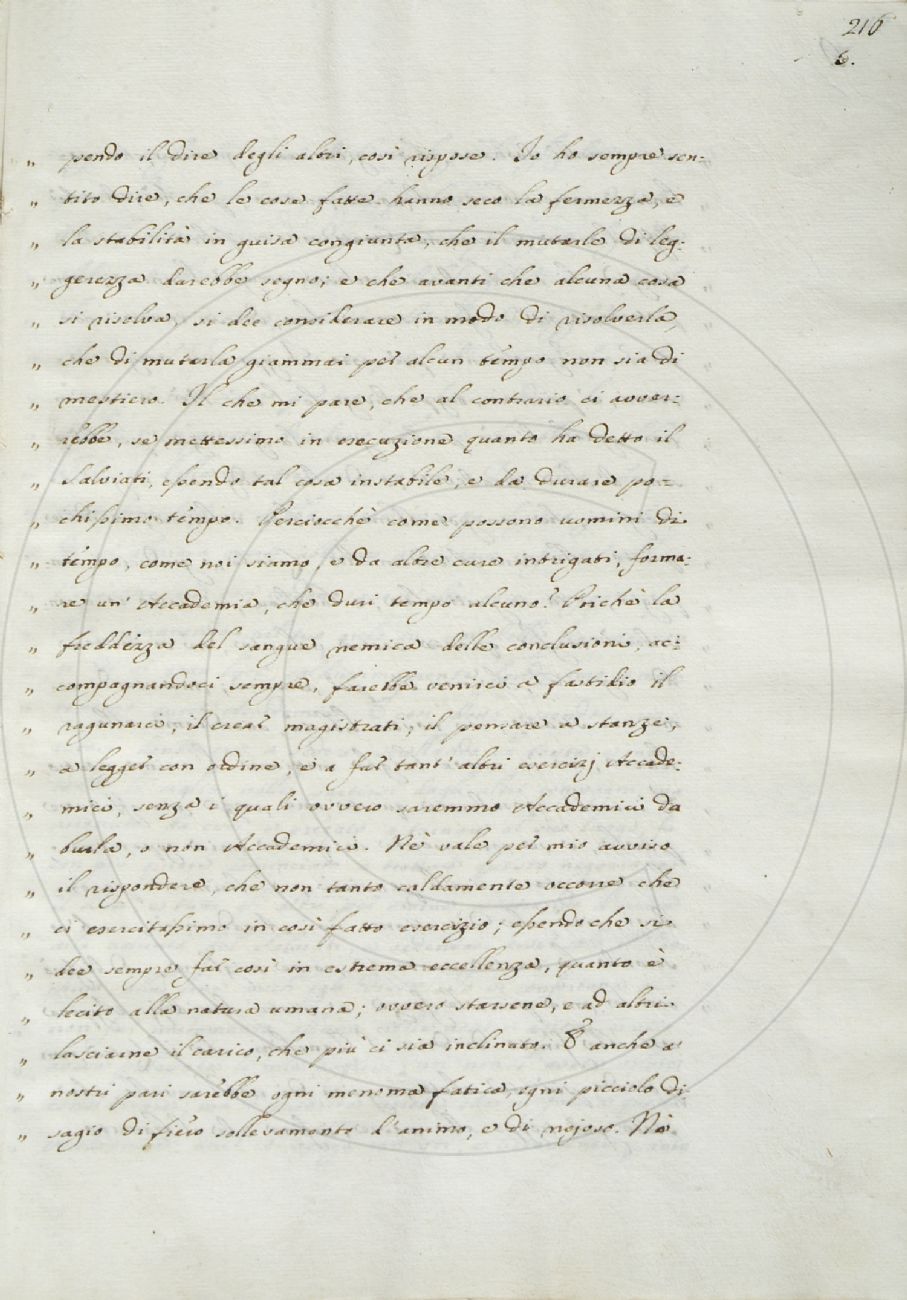 216
6.
„ pendo il dire degli altri, così rispose. Io ho sempre sen-
„ tito dire, che le cose fatte hanno seco la fermezza, e
„ la stabilità in guisa congiunta, che il mutarle di leg-
„ gerezza darebbe segno; e che avanti che alcuna cosa
„ si risolva, si dee considerare in modo di risolverla,
„ che di mutarla giammai per alcun tempo non sia di
„ mestiero. Il che mi pare, che al contrario ci avver-
„ rebbe, se mettessimo in esecuzione quanto ha detto il
„ Salviati, essendo tal cosa instabile, e da durare po-
„ chissimo tempo. Perciocchè come possono uomini di
„ tempo, come noi siamo, e da altre cure intrigati, forma-
„ re un' Accademia, che duri tempo alcuno? Poichè la
„ freddezza del sangue nemica delle conclusioni, ac-
„ compagnandoci sempre, farebbe venirci a fastidio il
„ ragunarci, il crear magistrati, il pensare a stanze,
„ a legger con ordine, e a far tant' altri esercizj Accade-
„ mici, senza i quali ovvero saremmo Accademici da
„ burla, o non Accademici. Nè vale per mio avviso
„ il rispondere, che non tanto caldamente occorre che
„ ci esercitassimo in così fatto esercizio; essendo che si
„ dee sempre far così in estrema eccellenza, quanto è
„ lecito alla natura umana; ovvero starsene, e ad altri
„ lasciarne il carico, che più ci sia inclinato. E anche a'
„ nostri pari sarebbe ogni menoma fatica, ogni picciolo di-
„ sagio di fiero sollevamento d'animo, e di nojoso. Nè